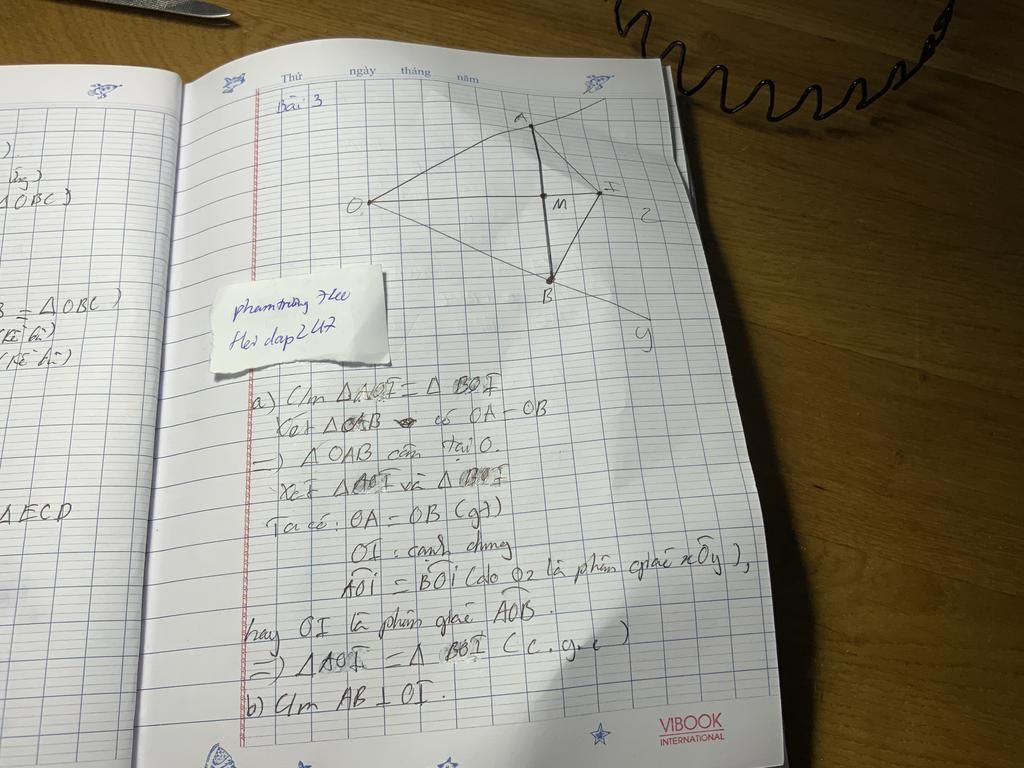 ).
ΔOBC)
= ΔOBC)
ΔECD
Thứ ngày tháng năm
Bài 3
A
O
M
I
z
B
y
phamtrường
Hoidap247
a) C/m ΔAOI = Δ BOI
Xét ΔOAB có OA = OB
=> ΔOAB cân tại O.
Xét ΔAOI và Δ BOI
Ta có: OA = OB (gt)
OI: cạnh chung
AÔI = BÔI (do Oz là phân giác xÔy),
hay OI là phân giác AÔB.
=> ΔAOI = Δ BOI (c.g.c)
b) C/m AB ⊥ OI.
VIBOOK
INTERNATIONAL